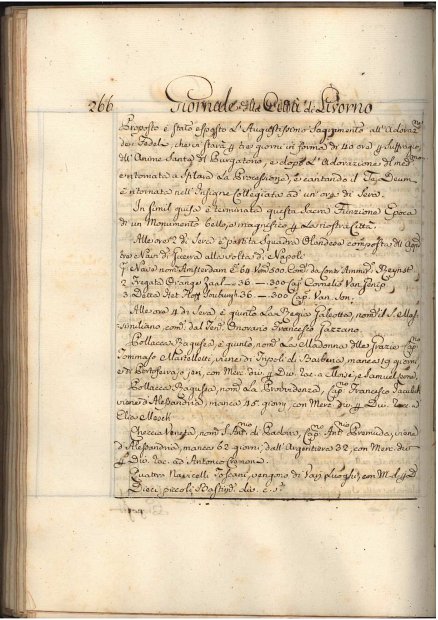 266 Giornale della Città di Livorno
Proposto è stato esposto L'Augustissimo Sagramento all'Adoraz.ne
dei Fedeli, che vi starà p tre giorni in forma di 40 ore p suffragio
dell'Anime Sante di Purgatorio, e dopo L'Adorazione del med.mo
è ritornata a Splard La Processione, e cantando il Te Deum
è ritornata nell'Insigne Collegiata ad un'ora di Sera.
In simil guisa è terminata questa Sacra Funzione Epoca
di un Monumento bello, e magnifico p La nostra Città.
Alle ore 2 di Sera è partita Squadra Olandese composta di
Navi di Guerra alla volta di Napoli
1 Nave nom. Amsterdam C. 64 Uom. 300 Com. da Cont. Ammir. Reynst
2 Fregata Orange Zaal - 36 - 300 Cap. Cornelis Van
3 Detta Het Hoff Souburgh 36 - 300 Cap. Van Son.
Alle ore 4 di Sera è giunto La Regia Galeotta, nom. il S. Mas-
similiano, com. dal Ten. Onorario Francesco Tarzano.
Pollacca Ragusea, è giunto, nom. La Madonna delle Grazie Cap.
Tommaso Martelletti, viene di Tripoli di Barberia, manca 19 giorni
e di Portoferrajo, con Merc. div. p Div. rac. a Moisè, e Samuel
Pollacca Ragusea, nom. La Providenza, Cap. Francesco
viene d'Alessandria, manca 45 giorni, con Merc. div. p Div. rac. a
Elia
Checcia Veneta, nom. S. Ant. di Padova, Cap. Ant. Premuda, viene
d'Alessandria, manca 62 giorni, dall'Argentiera 32, con Merc. div.
p Div. rac. ad Antonio
Quattro Navicelli Toscani, vengono di Varj Luoghi, con M. d. p D.
Dieci piccoli Bastim. div. c. s.